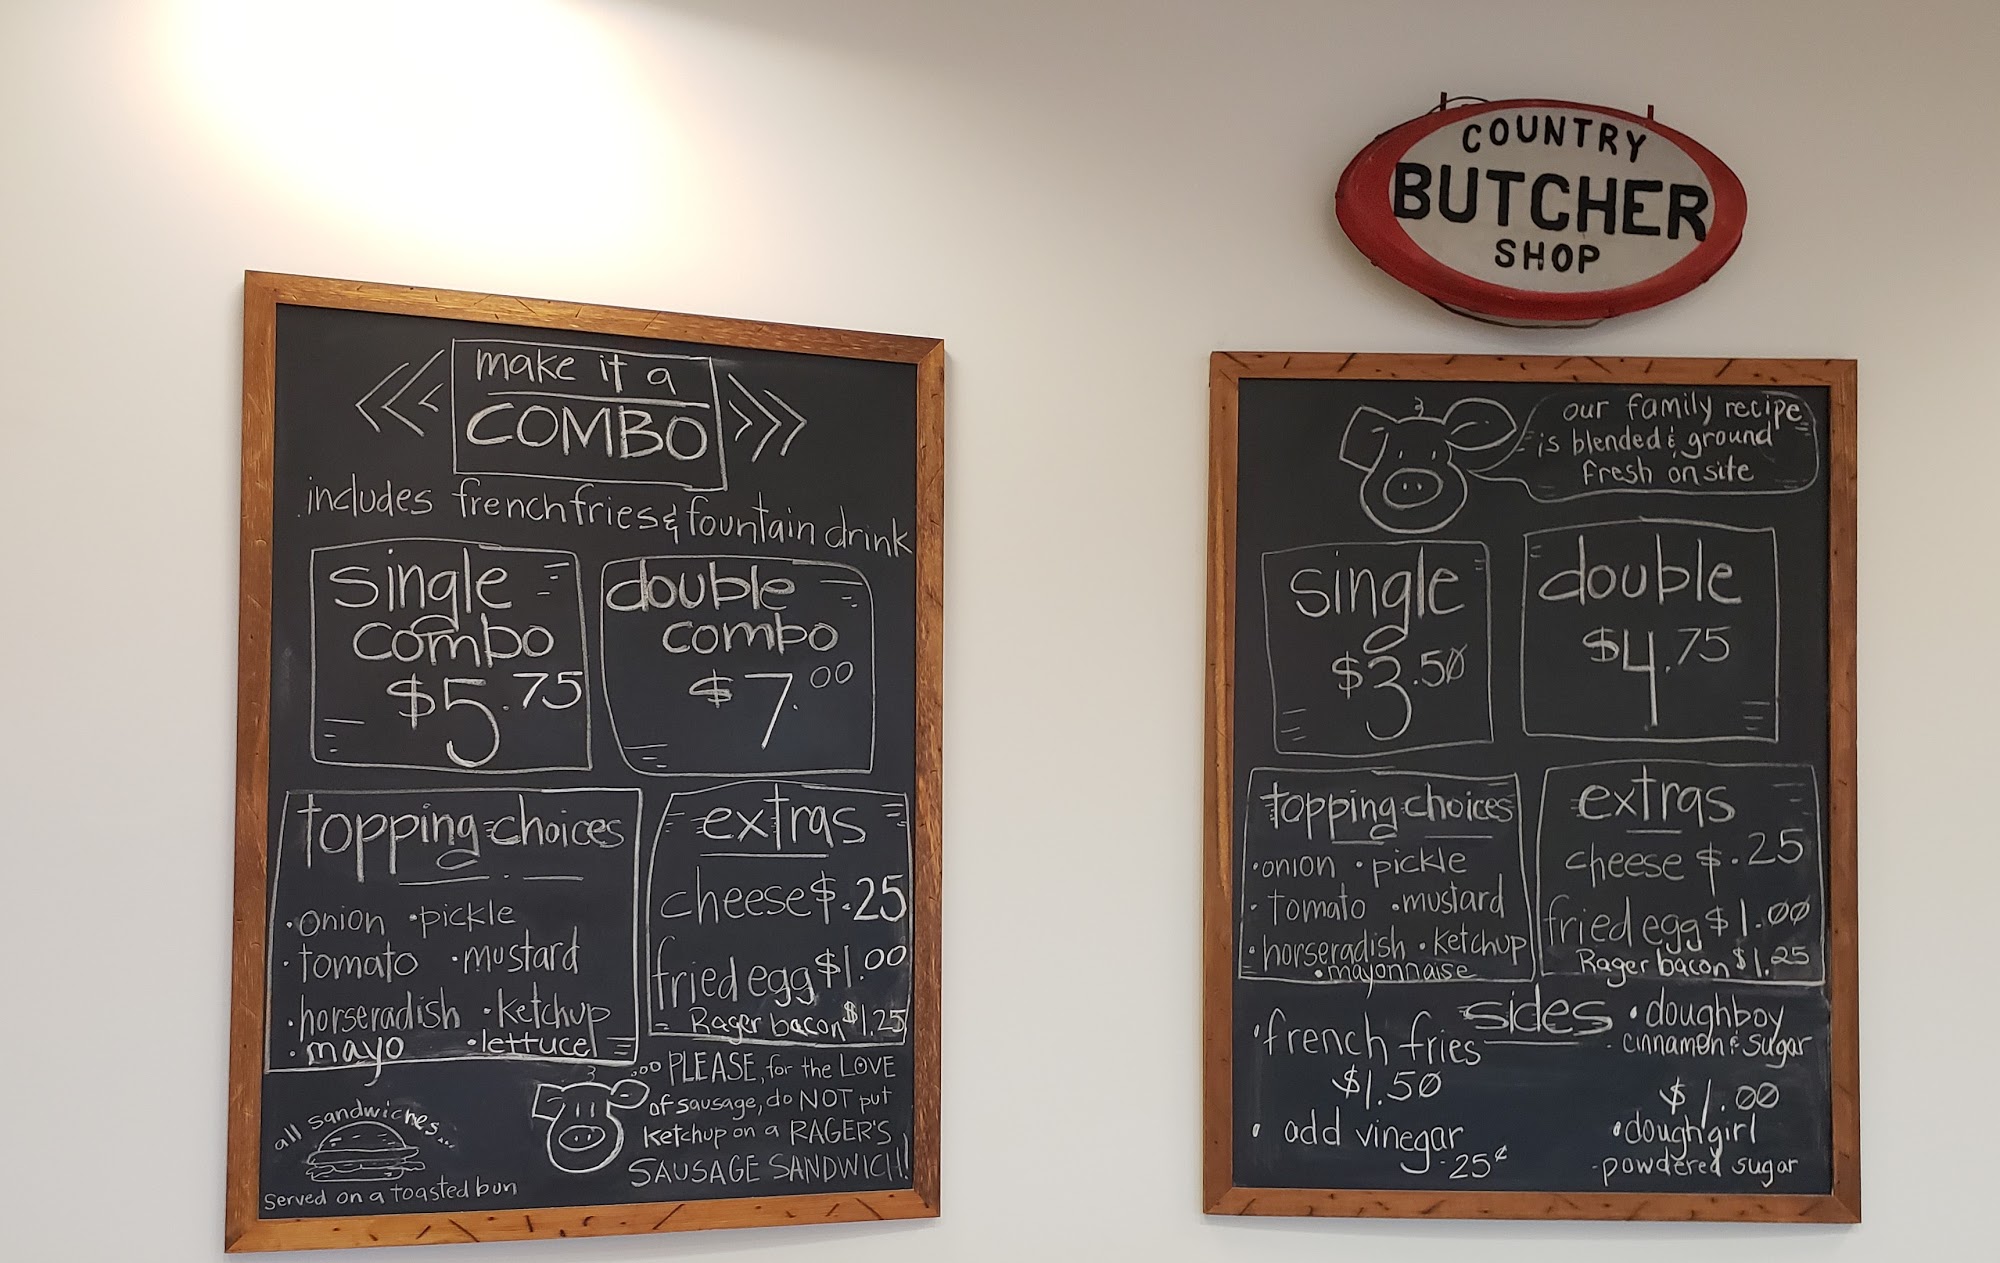 make it a
COMBO
includes french fries & fountain drink
single
combo
$5.75
double
combo
$7.00
topping choices
• onion • pickle
• tomato • mustard
• horseradish • ketchup
• mayo • lettuce
extras
cheese $.25
fried egg $1.00
Rager bacon $1.25
all sandwiches...
served on a toasted bun
...PLEASE, for the LOVE
of sausage, do NOT put
ketchup on a RAGER'S
SAUSAGE SANDWICH!
COUNTRY
BUTCHER
SHOP
our family recipe
is blended & ground
fresh on site
single
$3.50
double
$4.75
topping choices
• onion • pickle
• tomato • mustard
• horseradish • ketchup
• mayonnaise
extras
cheese $.25
fried egg $1.00
Rager bacon $1.25
sides
• french fries
$1.50
• add vinegar
25¢
• doughboy
cinnamon & sugar
$1.00
• doughgirl
powdered sugar